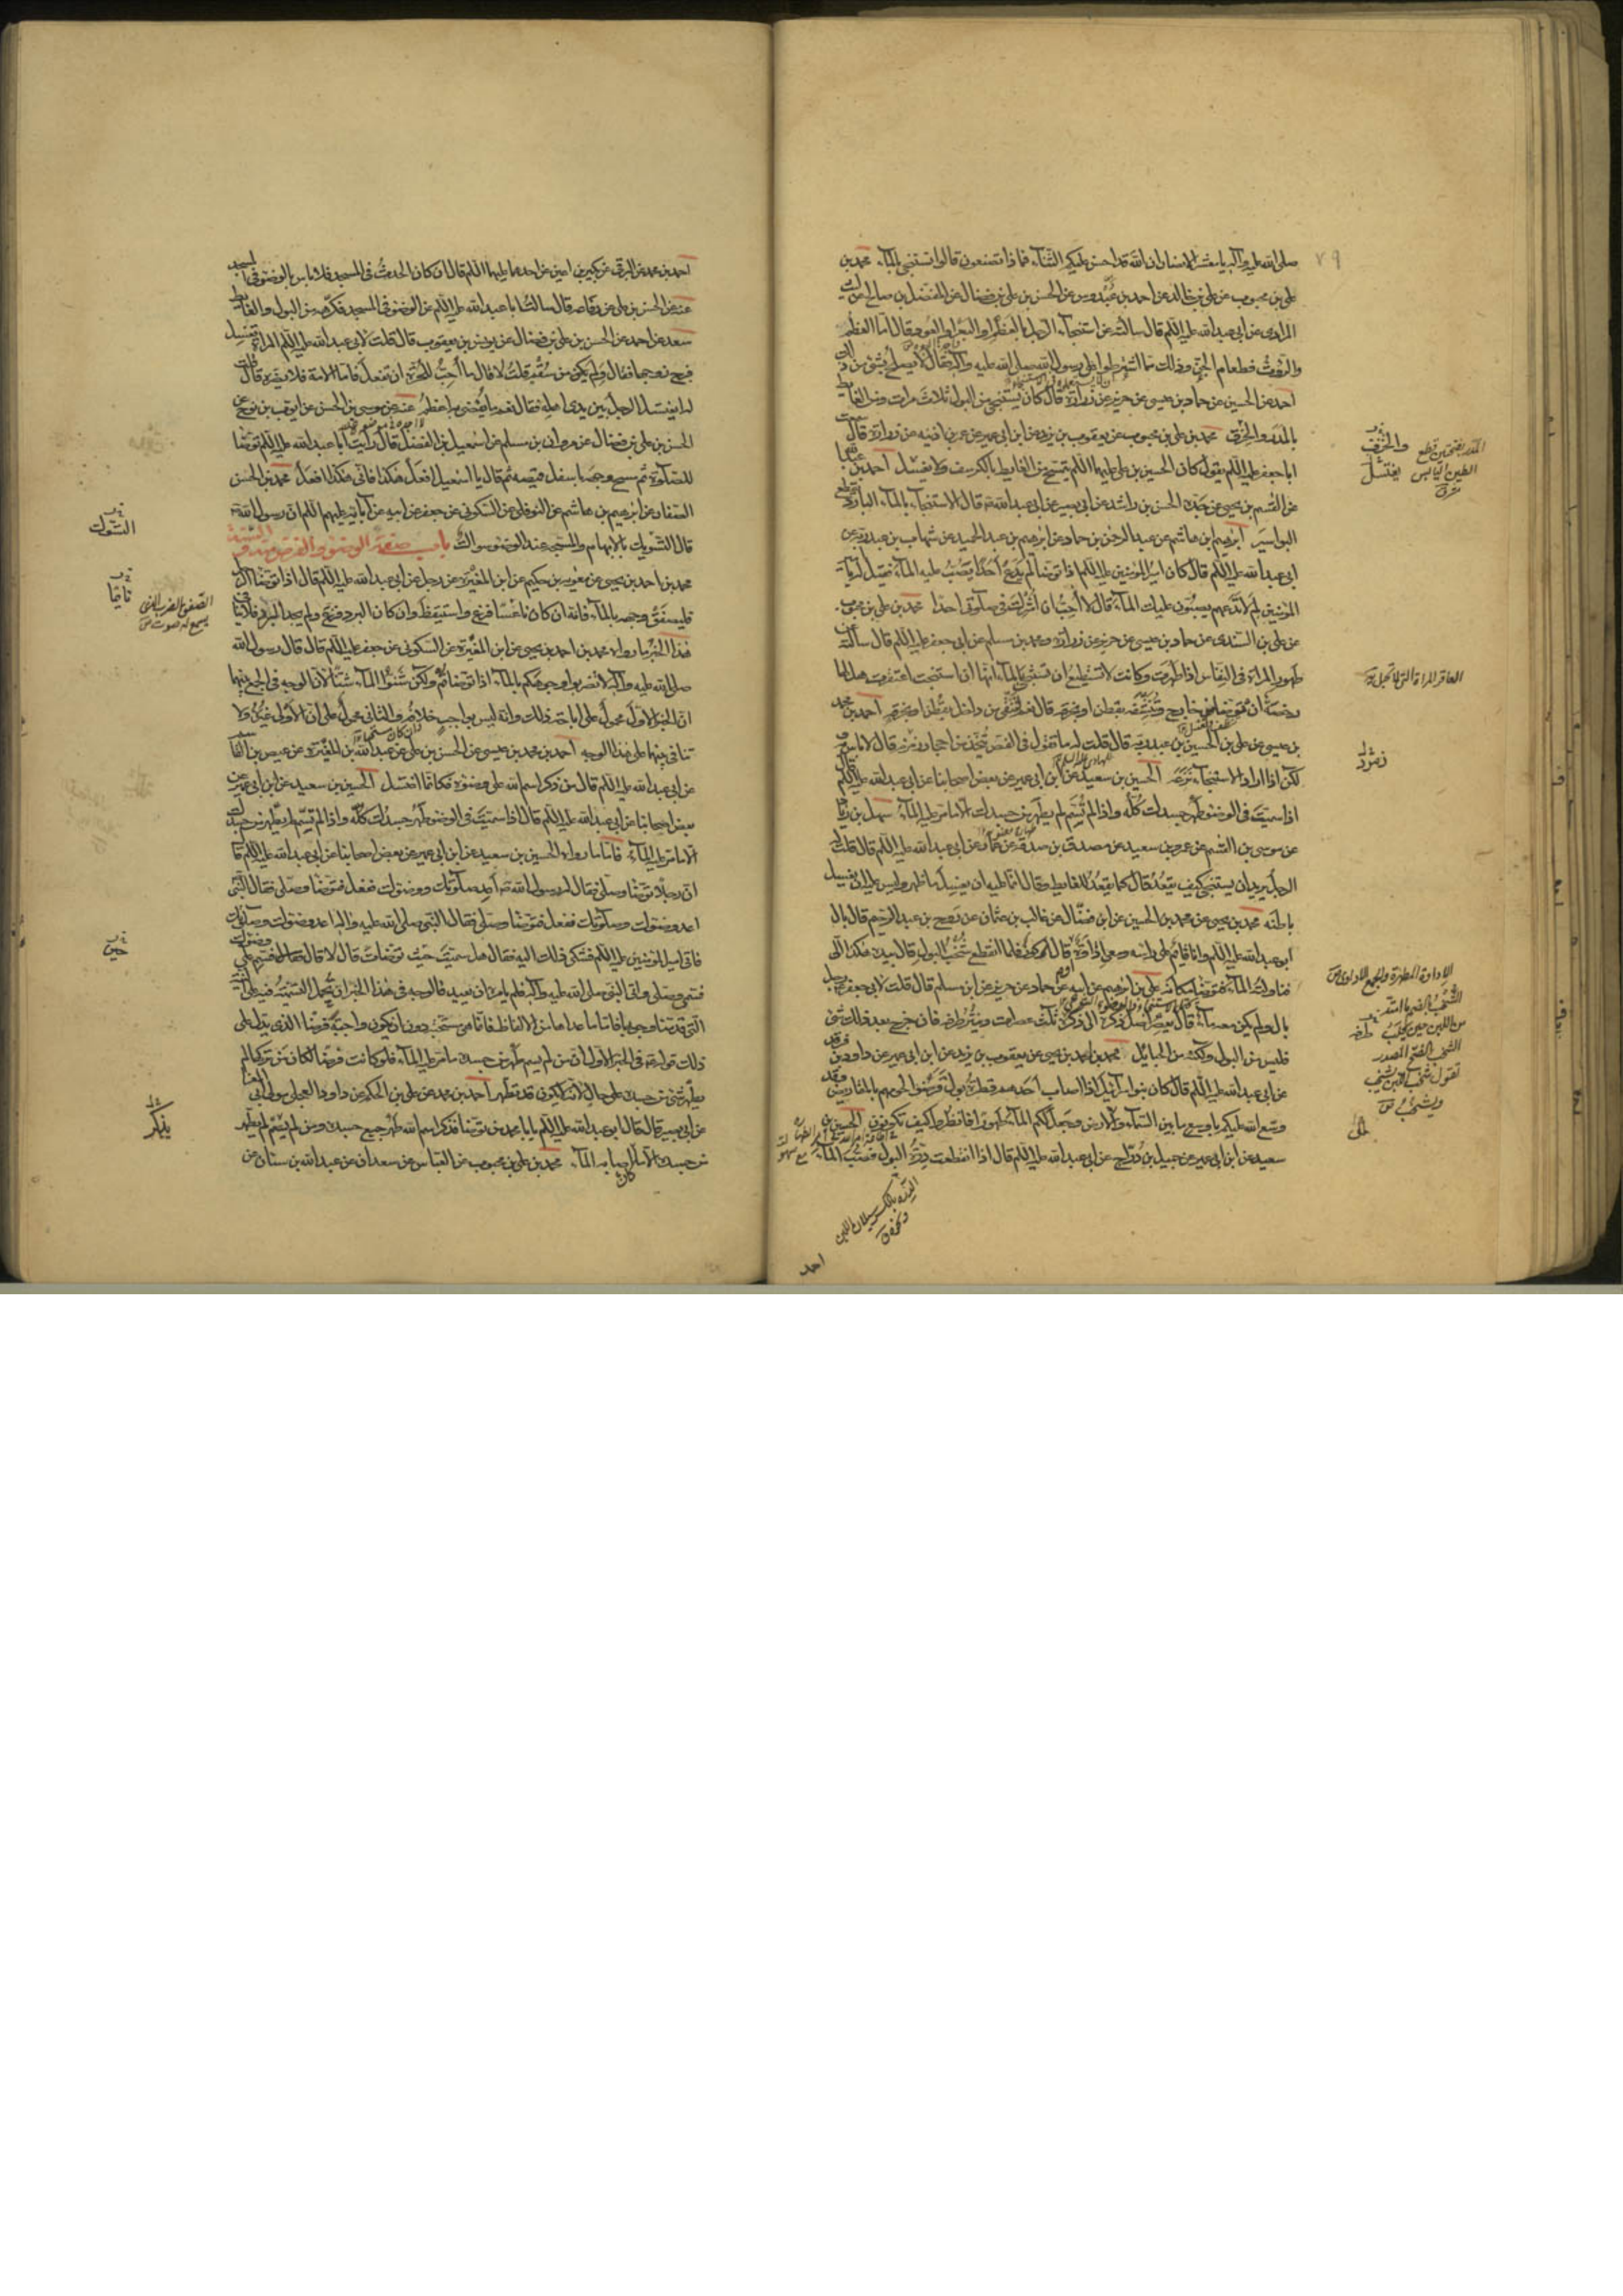 ٧٩
صلى الله عليه وآله يا معشر الانصار ان الله قد احسن عليكم الثناء فماذا تصنعون قالوا نستنجى بالماء محمد بن
على بن محبوب عن على بن خالد عن احمد بن عبدوس عن الحسن بن على بن فضال عن المفضل بن صالح عن ليث
المرادى عن ابى عبد الله عليه السلم قال سالته عن استنجاء الرجل بالعظم او البعر او العود قال اما العظم
والروث فطعام الجن وذلك مما اشترطوا على رسول الله صلى الله عليه وآله فقال لا يصلح بشئ من ذلك
احمد عن الحسين عن حماد بن عيسى عن حريز عن زرارة قال كان يستنجى من البول ثلاث مرات ومن الغايط
بالمدر والخرق محمد بن على بن محبوب عن يعقوب بن يزيد عن ابن ابى عمير عن عمر بن اذينه عن زرارة قال سمعت
ابا جعفر عليه السلم يقول كان الحسين بن على عليهما السلم يتمسح من الغايط بالكرسف ولا يغتسل احمد بن
عن القسم بن يحيى عن جده الحسن بن راشد عن ابى بصير عن ابى عبد الله قال الاستنجاء بالماء البارد يقطع
البواسير ابرهيم بن هاشم عن عبد الرحمن بن حماد عن ابرهيم بن عبد الحميد عن شهاب بن عبد ربه عن
ابى عبد الله عليه السلم قال كان امير المؤمنين عليه السلم اذا توضأ لم يدع احدا يصب عليه الماء فقيل له يا امير
المؤمنين لم لا تدعهم يصبون عليك الماء قال لا احب ان اشرك فى صلوتى احدا محمد بن على بن محبوب
عن على بن السندى عن حماد بن عيسى عن حريز عن زرارة ومحمد بن مسلم عن ابى جعفر عليه السلم قال سالته عن
طهور المراة فى النفاس اذا طهرت وكانت لا تستطيع ان تستنجى بالماء انها ان استنجت اعتقرت هل لها
رخصة ان تتوضأ من خارج وتنشفه بقطن او خرقه قال نعم لتنقى من داخل بقطن او بخرقه احمد بن محمد
بن عيسى عن على بن الحسين بن عبد ربه قال قلت له ما تقول فى الفص يتخذ من احجار زمزم قال لا باس به
لكن اذا اراد الاستنجاء نزعه الحسين بن سعيد عن ابن ابى عمير عن بعض اصحابنا عن ابى عبد الله عليه السلم قال
اذا سميت فى الوضوء طهر جسدك كله واذا لم تسم لم يطهر من جسدك الا ما مر عليه الماء سهل بن زياد
عن موسى بن القسم عن عمرو بن سعيد عن مصدق بن صدقة عن عمار عن ابى عبد الله عليه السلم قال قلت له
الرجل يريد ان يستنجى كيف يقعد قال كما يقعد للغايط وقال انما عليه ان يغسل ما ظهر وليس عليه ان يغسل
باطنه محمد بن يحيى عن محمد بن الحسين عن ابن فضال عن غالب بن عثمان عن روح بن عبد الرحيم قال بال
ابو عبد الله عليه السلم وانا قائم على راسه ومعى اداوة او قال كوز فلما انقطع شخب البول قال بيده هكذا الى
فناولته الماء فتوضأ مكانه على بن ابرهيم عن ابيه عن حماد عن حريز عن ابن مسلم قال قلت لابى جعفر رجل
بال ولم يكن معه ماء قال يعصر اصل ذكره الى ذكره ثلث عصرات وينتر طرفه فان خرج بعد ذلك شئ
فليس من البول ولكنه من الحبائل محمد بن احمد بن يحيى عن يعقوب بن يزيد عن ابن ابى عمير عن داود بن فرقد
عن ابى عبد الله عليه السلم قال كان بنو اسرائيل اذا اصاب احدهم قطرة بول قرضوا لحومهم بالمقاريض وقد
وسع الله عليكم باوسع ما بين السماء والارض وجعل لكم الماء طهورا فانظروا كيف تكونون الحسين بن
سعيد عن ابن ابى عمير عن جميل بن دراج عن ابى عبد الله عليه السلم قال اذا انقطعت درة البول فصب الماء
المدر بفتحتين قطع
الطين اليابس
والخرق
يغتسل
العاقر المراة التى لا تحبل
زمرد
الاداوة المطهرة والجمع الاداوى
الشخب بالضم ما امتد
من اللبن حين يحلب
الشخب بالفتح المصدر
تقول شخب اللبن يشخب
ويشخب
الدرة بالكسر سيلان اللبن
احمد
احمد بن محمد عن البرقى عن بكير بن اعين عن احدهما عليهما السلم قال ان كان الحدث فى المسجد فلا باس بالوضوء فى المسجد
عنه عن الحسن بن على عن رفاعه قال سالت ابا عبد الله عليه السلم عن الوضوء فى المسجد فكرهه من البول والغايط
سعد عن احمد عن الحسن بن على بن فضال عن يونس بن يعقوب قال قلت لابى عبد الله عليه السلم المراة تغسل
فرج زوجها فقال ولم يكن من سقم قلت لا قال ما احب للحرة ان تفعل فاما الامة فلا يضره قال قلت
له ايغتسل الرجل بين يدى اهله فقال نعم ما يفضى به اعظم عنه عن موسى بن الحسن عن ايوب بن نوح عن
الحسن بن على بن فضال عن مروان بن مسلم عن اسمعيل بن الفضل قال رايت ابا عبد الله عليه السلم توضأ
للصلوة ثم مسح وجهه باسفل قميصه ثم قال يا اسمعيل افعل هكذا فانى هكذا افعل محمد بن الحسن
الصفار عن ابرهيم بن هاشم عن النوفلى عن السكونى عن جعفر عن ابيه عن آبائه عليهم السلم ان رسول الله
قال التسويك بالابهام والمسبحة عند الوضوء سواك باب صفة الوضوء والفرض منه والسنة
محمد بن احمد بن يحيى عن معوية بن حكيم عن ابن المغيرة عن رجل عن ابى عبد الله عليه السلم قال اذا توضأ الرجل
فليصفق وجهه بالماء فانه ان كان ناعسا فزع واستيقظ وان كان البرد فزع ولم يجد البرد فلا ينافى
هذا الخبر ما رواه محمد بن احمد بن يحيى عن ابن المغيرة عن السكونى عن جعفر عليه السلم قال قال رسول الله
صلى الله عليه وآله لا تضربوا وجوهكم بالماء اذا توضاتم ولكن شنوا الماء شنا لان الوجه فى الجمع بينهما
ان الخبر الاول محمول على اباحة ذلك وانه ليس بواجب خلافه والثانى محمول على ان الاولى غيره ولا
تنافى بينهما على هذا الوجه احمد بن محمد بن عيسى عن الحسن بن على عن عبد الله بن المغيرة عن عيص بن القاسم
عن ابى عبد الله عليه السلم قال من ذكر اسم الله على وضوئه فكانما اغتسل الحسين بن سعيد عن ابن ابى عمير عن
بعض اصحابنا عن ابى عبد الله عليه السلم قال اذا سميت فى الوضوء طهر جسدك كله واذا لم تسم لم يطهر من جسدك
الا ما مر عليه الماء فاما ما رواه الحسين بن سعيد عن ابن ابى عمير عن بعض اصحابنا عن ابى عبد الله عليه السلم قال
ان رجلا توضأ وصلى فقال له رسول الله اعد صلوتك ووضوئك ففعل فتوضأ وصلى فقال له النبى
اعد وضوئك وصلوتك ففعل فتوضأ وصلى فقال له النبى صلى الله عليه وآله اعد وضوئك وصلوتك
فاتى امير المؤمنين عليه السلم فشكى ذلك اليه فقال هل سميت حيث توضات قال لا قال فسم على وضوئك
فسمى وصلى واتى النبى صلى الله عليه وآله فلم يامره ان يعيد فالوجه فى هذا الخبر ان تحمل التسمية فيه على النية
التى قد بينا وجوبها فاما ما عداها من الالفاظ فانما هى مستحبة دون ان يكون واجبة فرضا الذى يدل على
ذلك قوله فى الخبر الاول ان من لم يسم طهر من جسده ما مر عليه الماء فلو كانت فرضا لكان من تركها لم
يطهر شئ من جسده على حال لانه لا يكون قد تطهر احمد بن محمد عن على بن الحكم عن داود العجلى مولى ابى المغرا
عن ابى بصير قال قال ابو عبد الله عليه السلم يا با محمد من توضأ فذكر اسم الله طهر جميع جسده ومن لم يسم لم يطهر
من جسده الا ما اصابه الماء محمد بن على بن محبوب عن العباس عن سعدان عن عبد الله بن سنان عن
السواك
الصفق الضرب الذى
يسمع له صوت
حين
يذكر